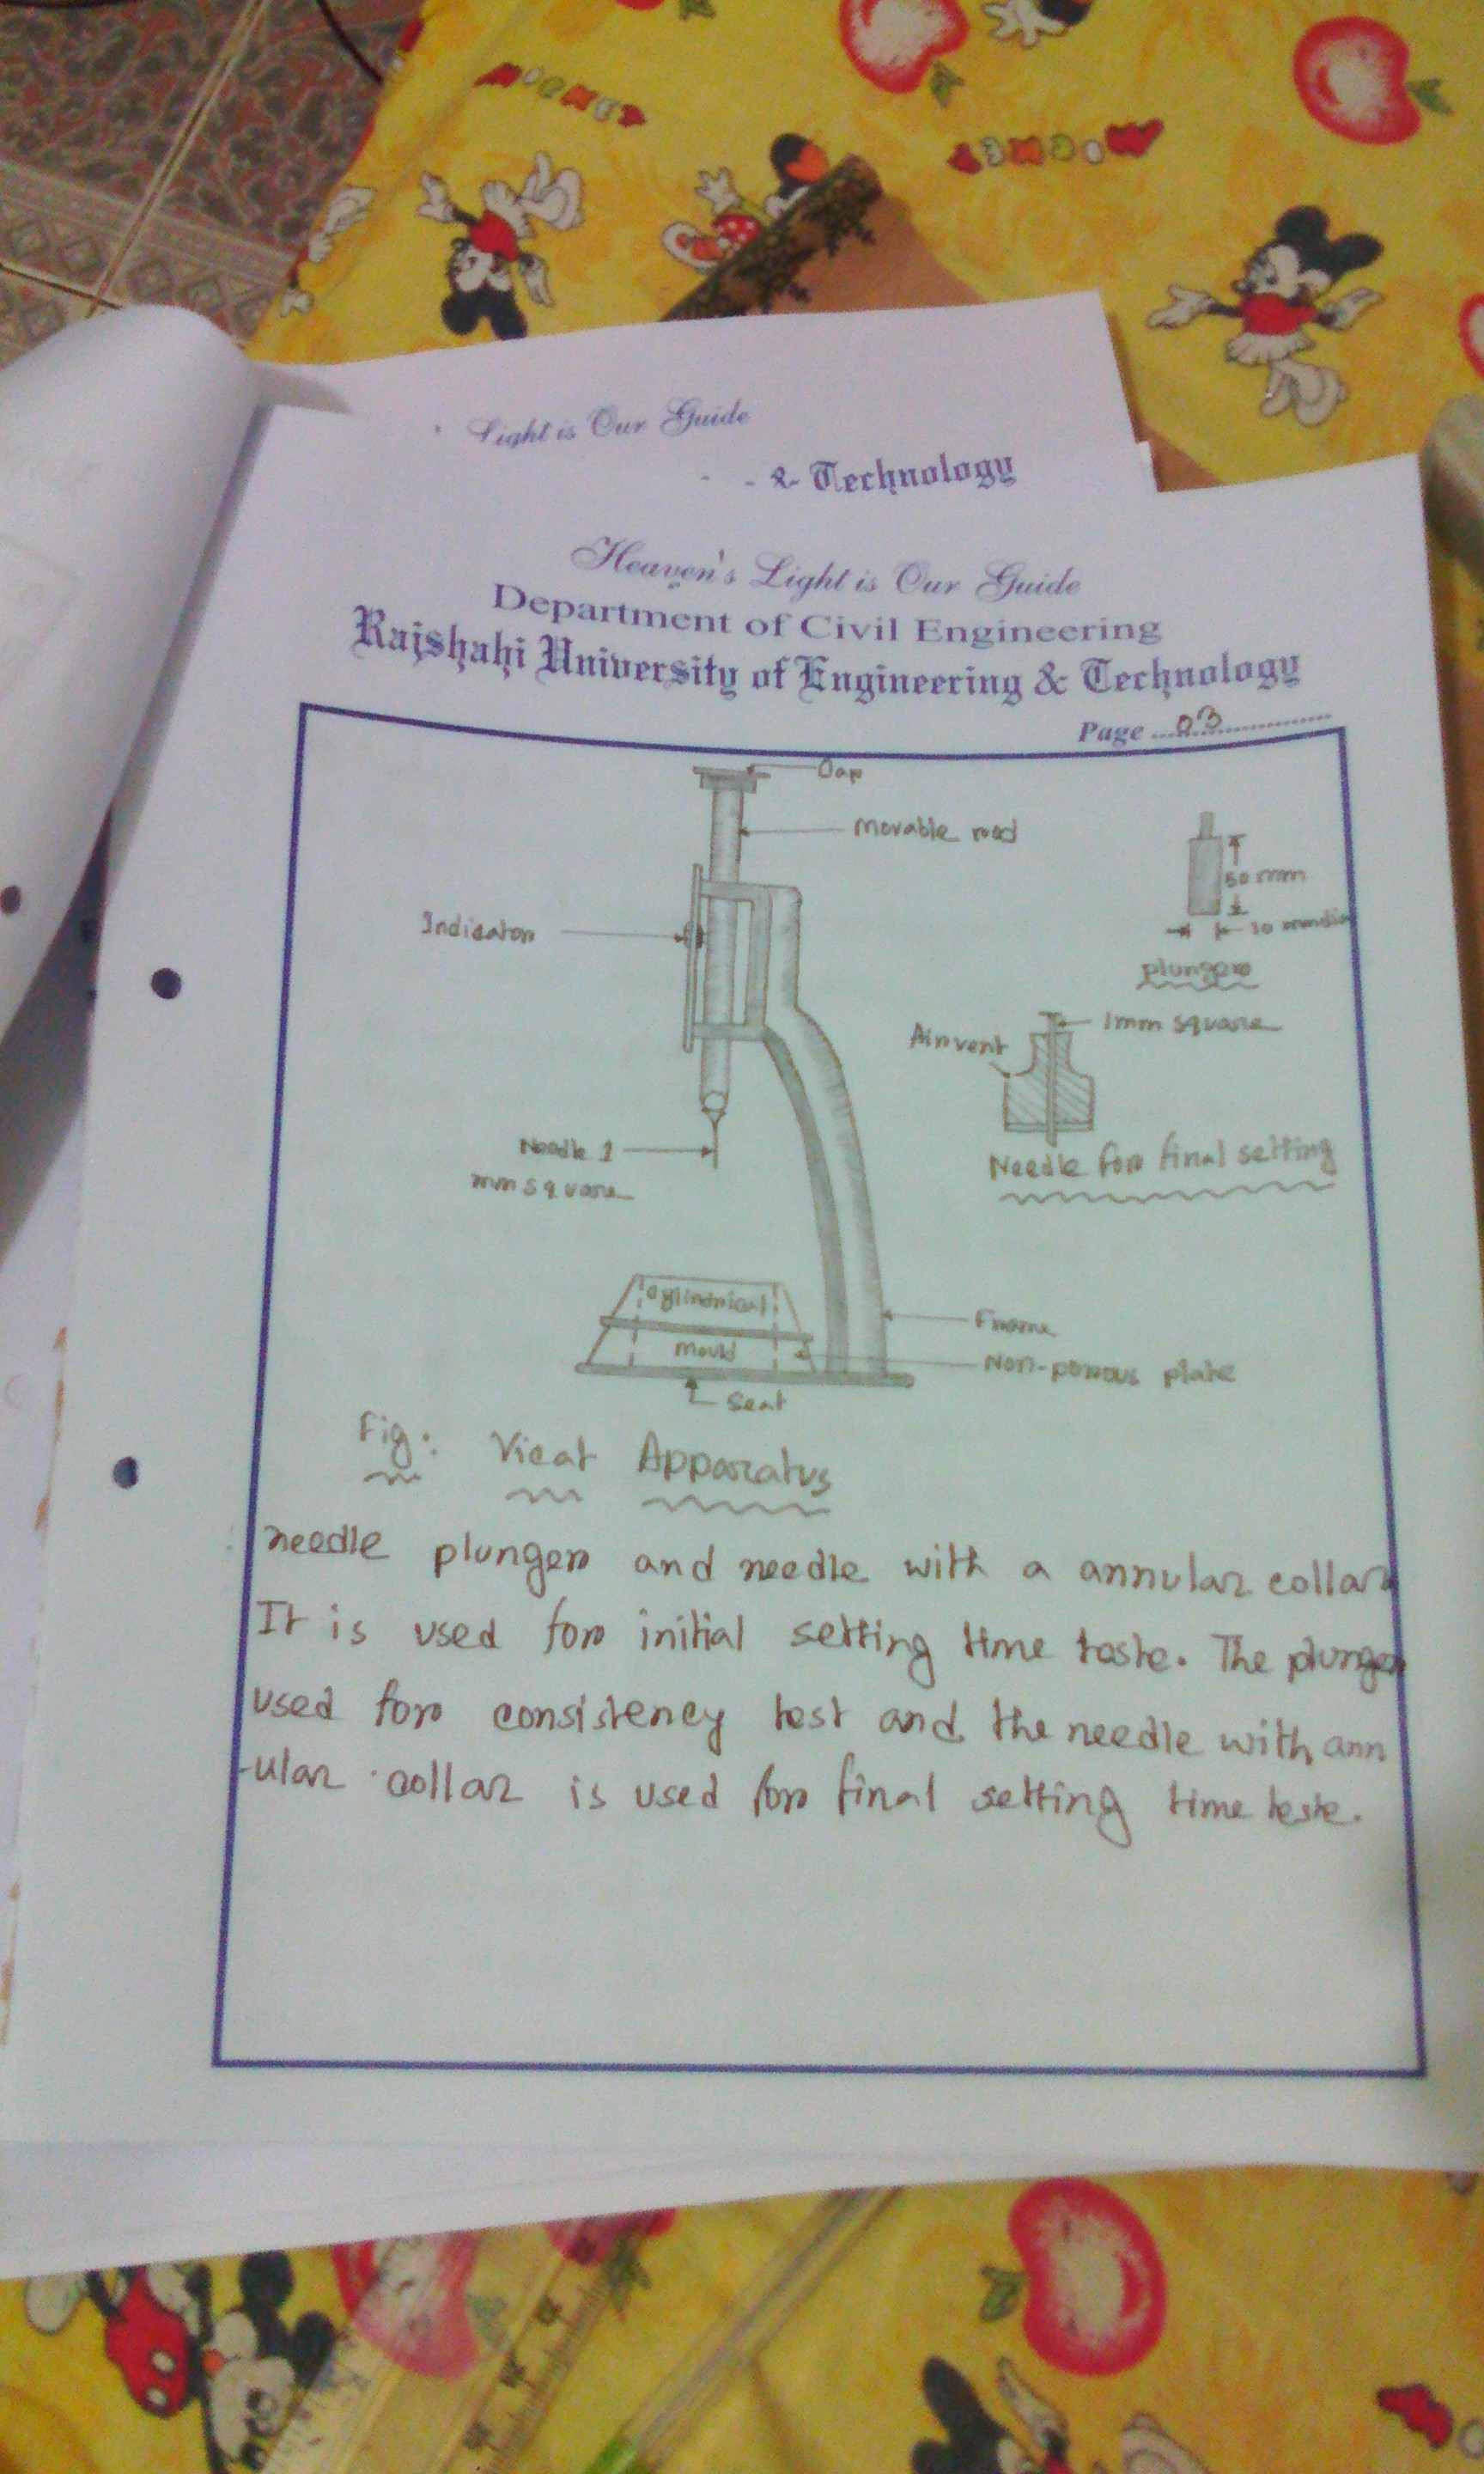 Light is Our Guide
& Technology
Heaven's Light is Our Guide
Department of Civil Engineering
Rajshahi University of Engineering & Technology
Page 03
Cap
Movable rod
50 mm
Indicator
10 mm dia
plunger
1mm square
Air vent
Needle 1
mm square
Needle for final setting
Cylindrical
Frame
Mould
Non-porous plate
Seat
Fig: Vicat Apparatus
needle plunger and needle with a annular collar
It is used for initial setting time teste. The plunger
used for consistency test and the needle with ann
-ular collar is used for final setting time teste.